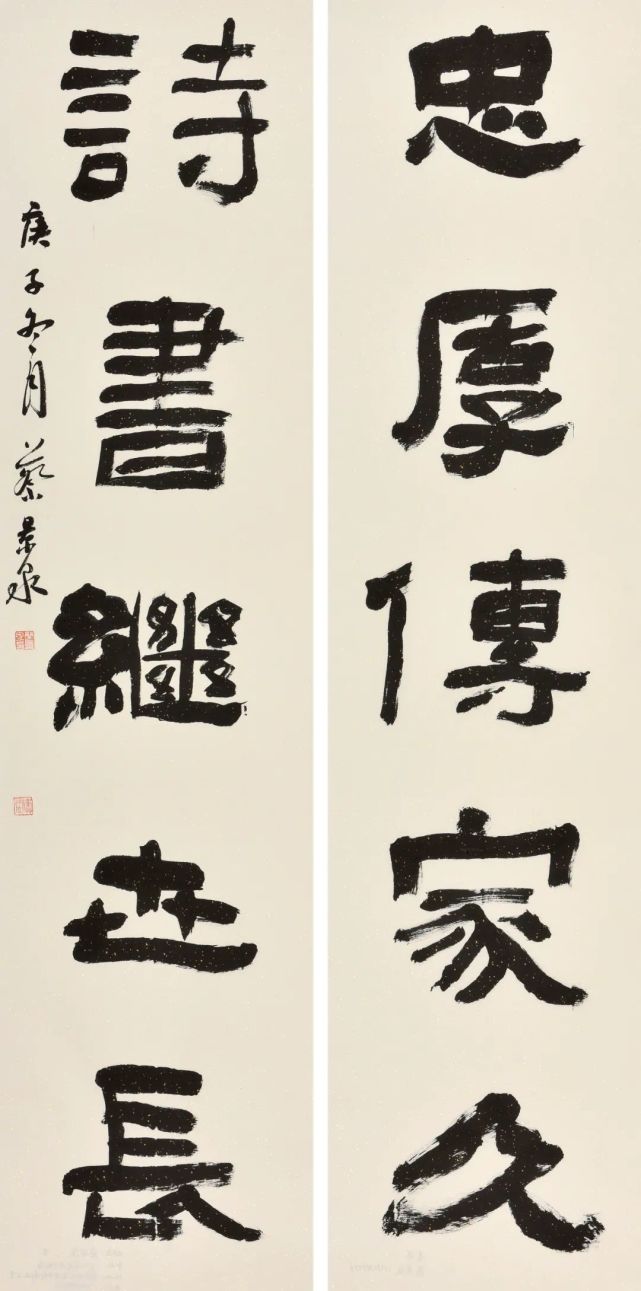 忠厚傳家久
詩書繼世長
庚子冬月 蔡景泉